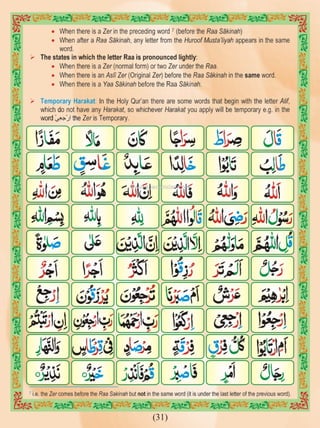 • When there is a Zer in the preceding word ¹ (before the Raa Sākinah)
• When after a Raa Sākinah, any letter from the Huroof Musta'liyah appears in the same
word.
➢ The states in which the letter Raa is pronounced lightly:
• When there is a Zer (normal form) or two Zer under the Raa.
• When there is an Aslī Zer (Original Zer) before the Raa Sākinah in the same word.
• When there is a Yaa Sākinah before the Raa Sākinah.
➢ Temporary Harakat: In the Holy Qur'an there are some words that begin with the letter Alif,
which do not have any Harakat, so whichever Harakat you apply will be temporary e.g. in the
word اِرْجِعِىْ the Zer is Temporary.
قَالَ صِرَاطَ سِرَاجًا كَانَ مَفَازًا
طَالِبُ تَابُوْا خَالِدًا عَابِدٌ غَاسِقٍ طَعَامِ
اَللّٰهُ وَاللّٰهُ فَاللّٰهُ اِنَّ اللّٰهَ هُوَ اللّٰهُ مِنَ اللّٰهِ
رَسُوْلُ اللّٰهِ رَضِىَ اللّٰهُ قَالُوا اللّٰهُمَّ لِلّٰهِ بِاللّٰهِ بِسْمِ اللّٰهِ
قُلِ اللّٰهُمَّ مَا وَلّٰهُمْ اِلَّا الَّذِيْنَ اِنَّ الَّذِيْنَ عَلٰى صَلٰوةَ
رَجُلٌ اَلَمْ تَرَ رُزِقُوْا اَكْثَرُ اَجْرًا اَجْرٌ
اِبْرٰهِيْمَ عَرْشُ تُرْجَعُوْنَ يُرْزَقُوْنَ اِرْجِعْ
اِرْجِعُوْا اِرْجِعِىْ اِرْكَعُوْا رَبِّ ارْحَمْهُمَا رَبِّ ارْجِعُوْنِ اِنِ ارْتَبْتُمْ
اَمِ ارْتَابُوْا كُلُّ فِرْقٍ فِرْقَةٍ مِرْصَادًا فِىْ قِرْطَاسٍ وَالنَّهَارِ
رِجَالٌ اَمْرٌ قُمْ فَاَنْذِرْ خَيْرٌ نَذِيْرٌ
¹ i.e. the Zer comes before the Raa Sakinah but not in the same word (it is under the last letter of the previous word).
(31)